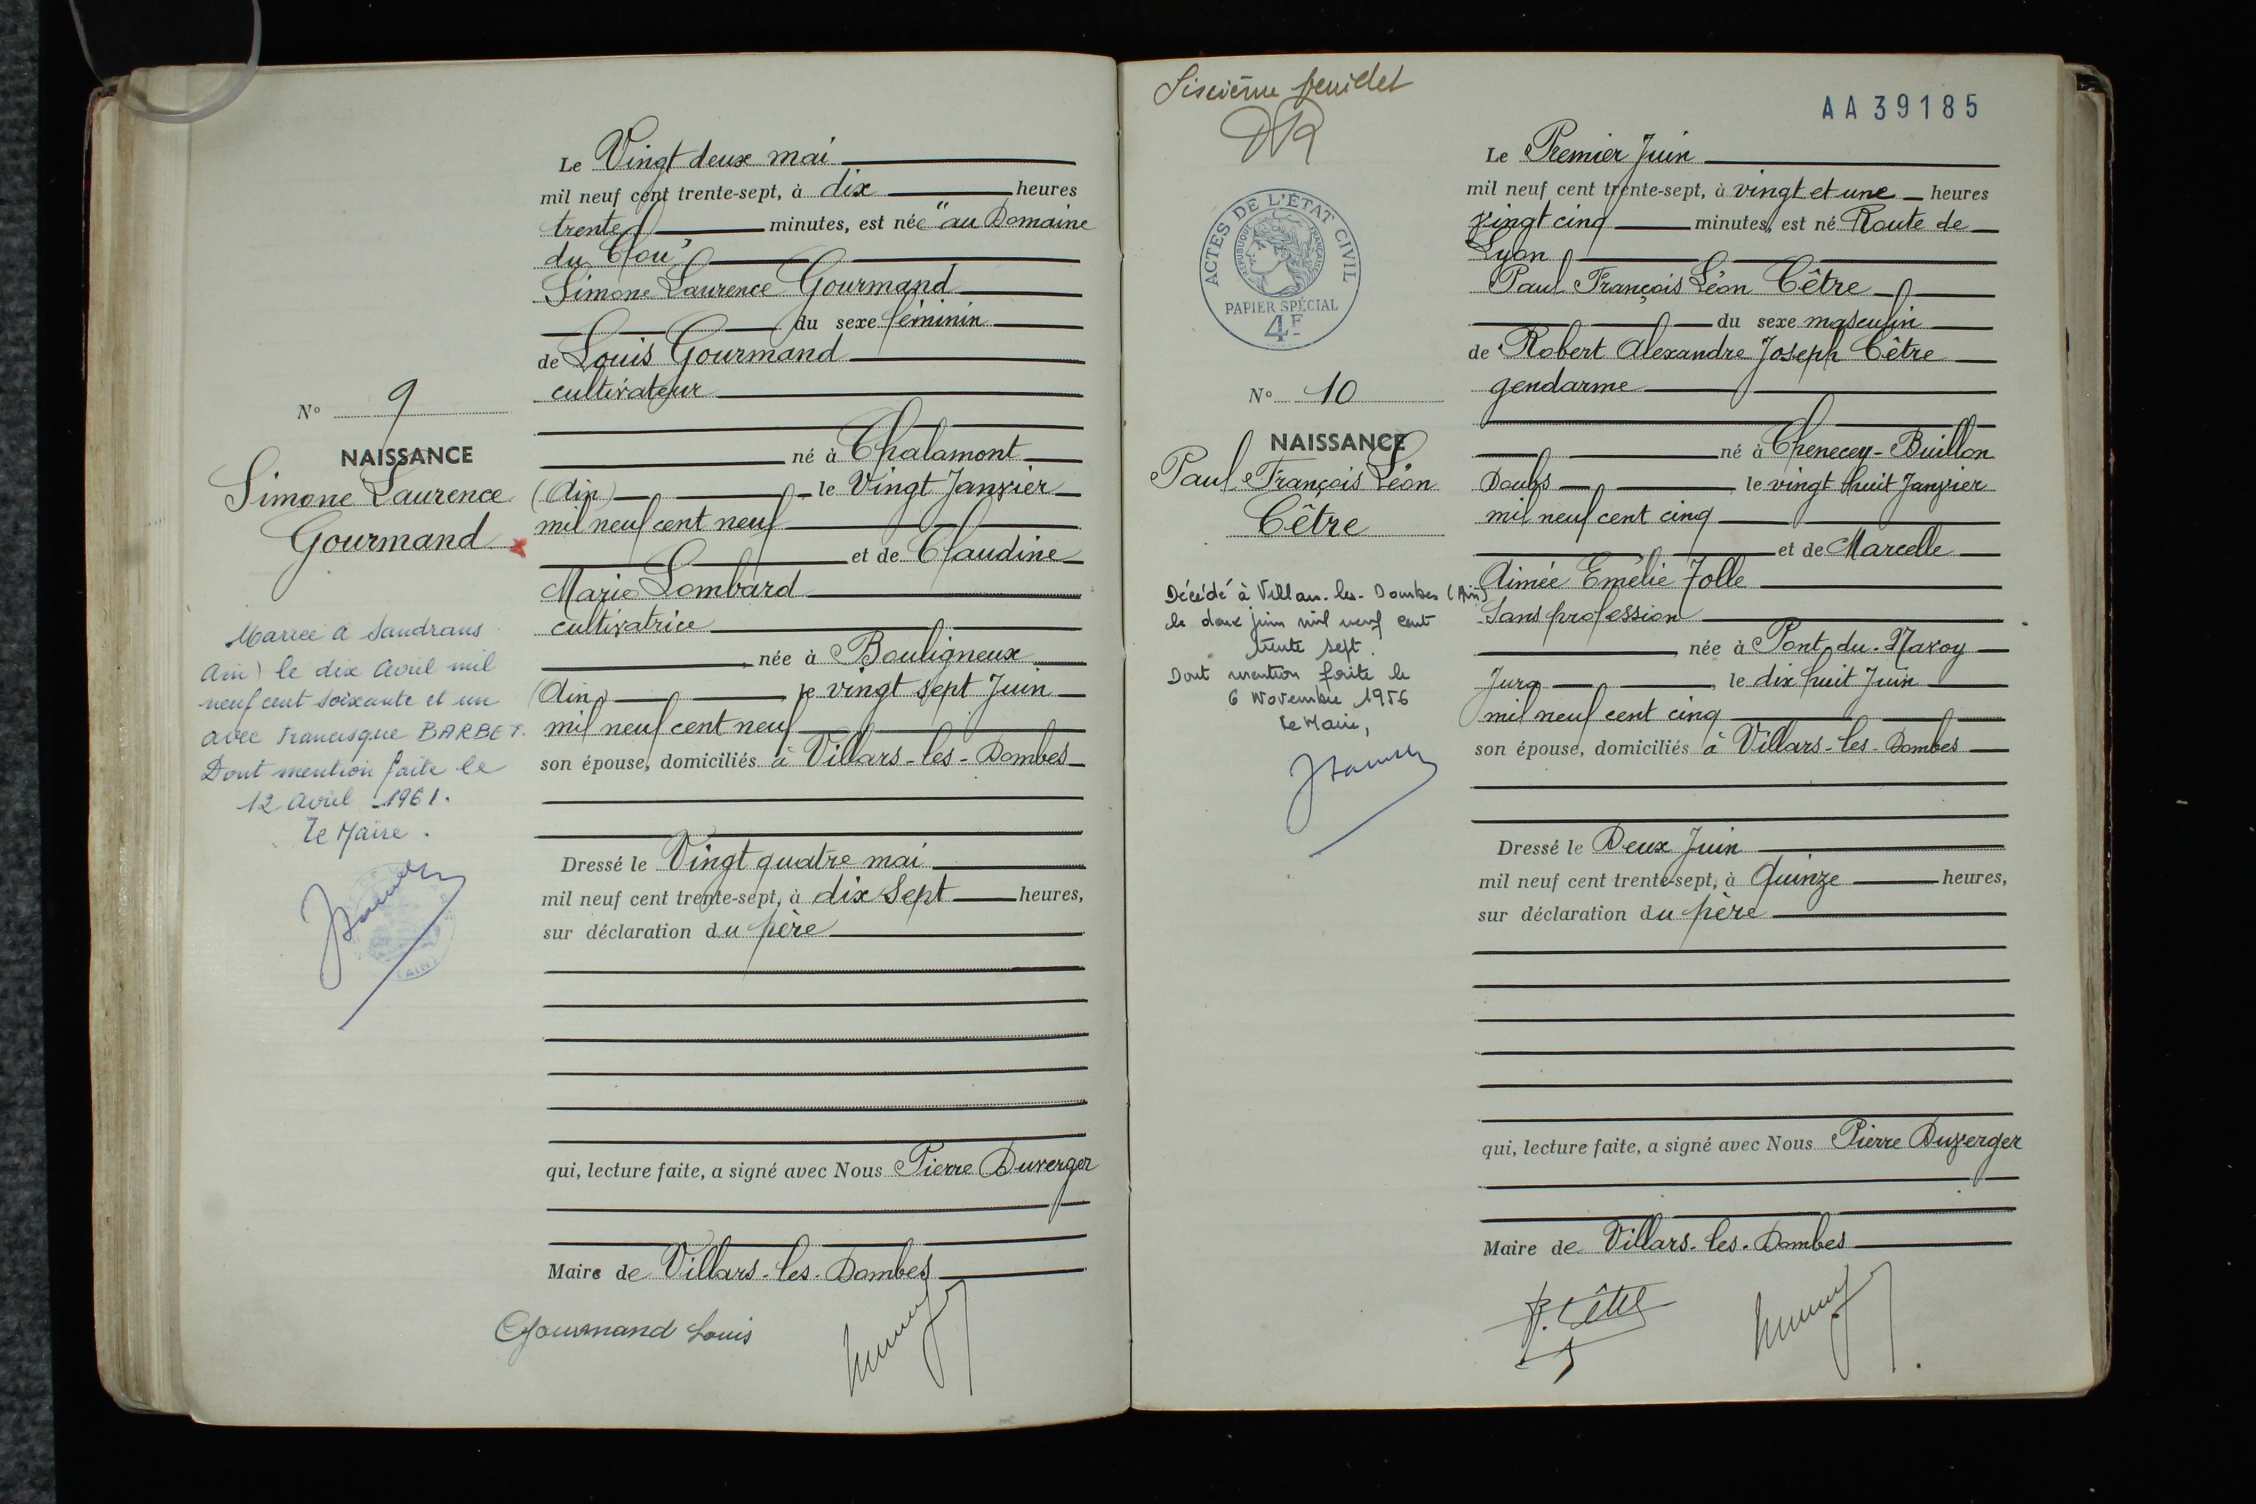 Le Vingt deux mai
mil neuf cent trente-sept, à dix heures
trente minutes, est née "au Domaine
du Clou"
Simone Laurence Gourmand
du sexe féminin
de Louis Gourmand
cultivateur
né à Chalamont
(Ain) le Vingt Janvier
mil neuf cent neuf
et de Claudine
Marie Lombard
cultivatrice
née à Bouligneux
(Ain) le vingt sept Juin
mil neuf cent neuf
son épouse, domiciliés à Villars-les-Dombes
Dressé le Vingt quatre mai
mil neuf cent trente-sept, à dix sept heures,
sur déclaration du père
qui, lecture faite, a signé avec Nous Pierre Duverger
Maire de Villars-les-Dombes
Gourmand Louis
N° 9
NAISSANCE
Simone Laurence
Gourmand
Mariée à Sandrans
Ain) le dix Avril mil
neuf cent soixante et un
avec Francisque BARBET.
Dont mention faite le
12 Avril 1961.
Le Maire.
(AIN)
Sixième feuillet
AA39185
ACTES DE L'ÉTAT CIVIL
RÉPUBLIQUE FRANÇAISE
PAPIER SPÉCIAL
4F
N° 10
NAISSANCE
Paul François Léon
Cêtre
Décédé à Villars-les-Dombes (Ain)
le deux juin mil neuf cent
trente sept.
Dont mention faite le
6 Novembre 1956
Le Maire,
Le Premier Juin
mil neuf cent trente-sept, à vingt et une heures
vingt cinq minutes, est né Route de
Lyon
Paul François Léon Cêtre
du sexe masculin
de Robert Alexandre Joseph Cêtre
gendarme
né à Chenecey-Buillon
Doubs le vingt huit Janvier
mil neuf cent cinq
et de Marcelle
Aimée Emélie Jolle
Sans profession
née à Pont-du-Navoy
Jura, le dix huit Juin
mil neuf cent cinq
son épouse, domiciliés à Villars-les-Dombes
Dressé le Deux Juin
mil neuf cent trente-sept, à Quinze heures,
sur déclaration du père
qui, lecture faite, a signé avec Nous Pierre Duverger
Maire de Villars-les-Dombes
R. Cêtre